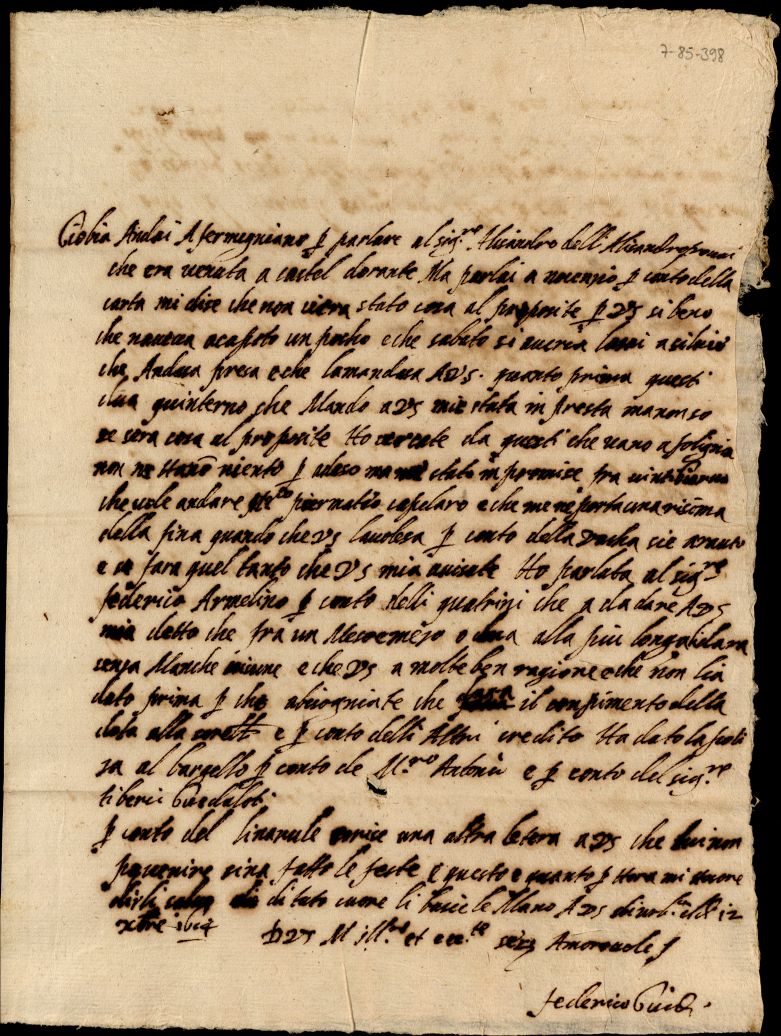 7-85-398
Giobia Andai A fermigniano p parlare al sig.re Alisandro delli Alisandro
che era venuta a castel durante Ma parlai a nocenzio p conto della
carta mi dise che non viera stato cosa al proposite p VS si bene
che naveva acapato un pocho e che sabato si averia
che Andava presa e che lamandava A VS. quanto prima questi
dua quinterno che Mando a VS mie stata in presta ma non so
se sera cosa al proposite Ho cercate da questi che vano a folignia
non ne Hano niente p adeso ma stato in promise fra
che vole andare capelaro e che me ne porta una risma
della fina quando che VS lavolesa p conto della vacha sie
e se fara quel tanto che VS mia avisate Ho parlata al sig.re
federico Armelino p conto delli quatrini che a da dare A VS
mia detto che fra un Mese o dua alla piu longa li dara
senza Manche niune e che VS a molte ben ragione e che non lia
dato prima p che abisogniate che il conpimento della
dota alla e p conto delli Altri credito Ha dato la poli
za al bargello p conto de M.ro Antonio e p conto del sig.re
tiberio Guedaloti
p conto del una altra letera a VS che lui non
po venire sina fatto le feste e questo e quanto p Hora mi
dirli salvo di tuto cuore li bacie le Mano A VS di 12
xbre 1614
D VS M Ill.re et ecc.te Amorevole
federico Guid.